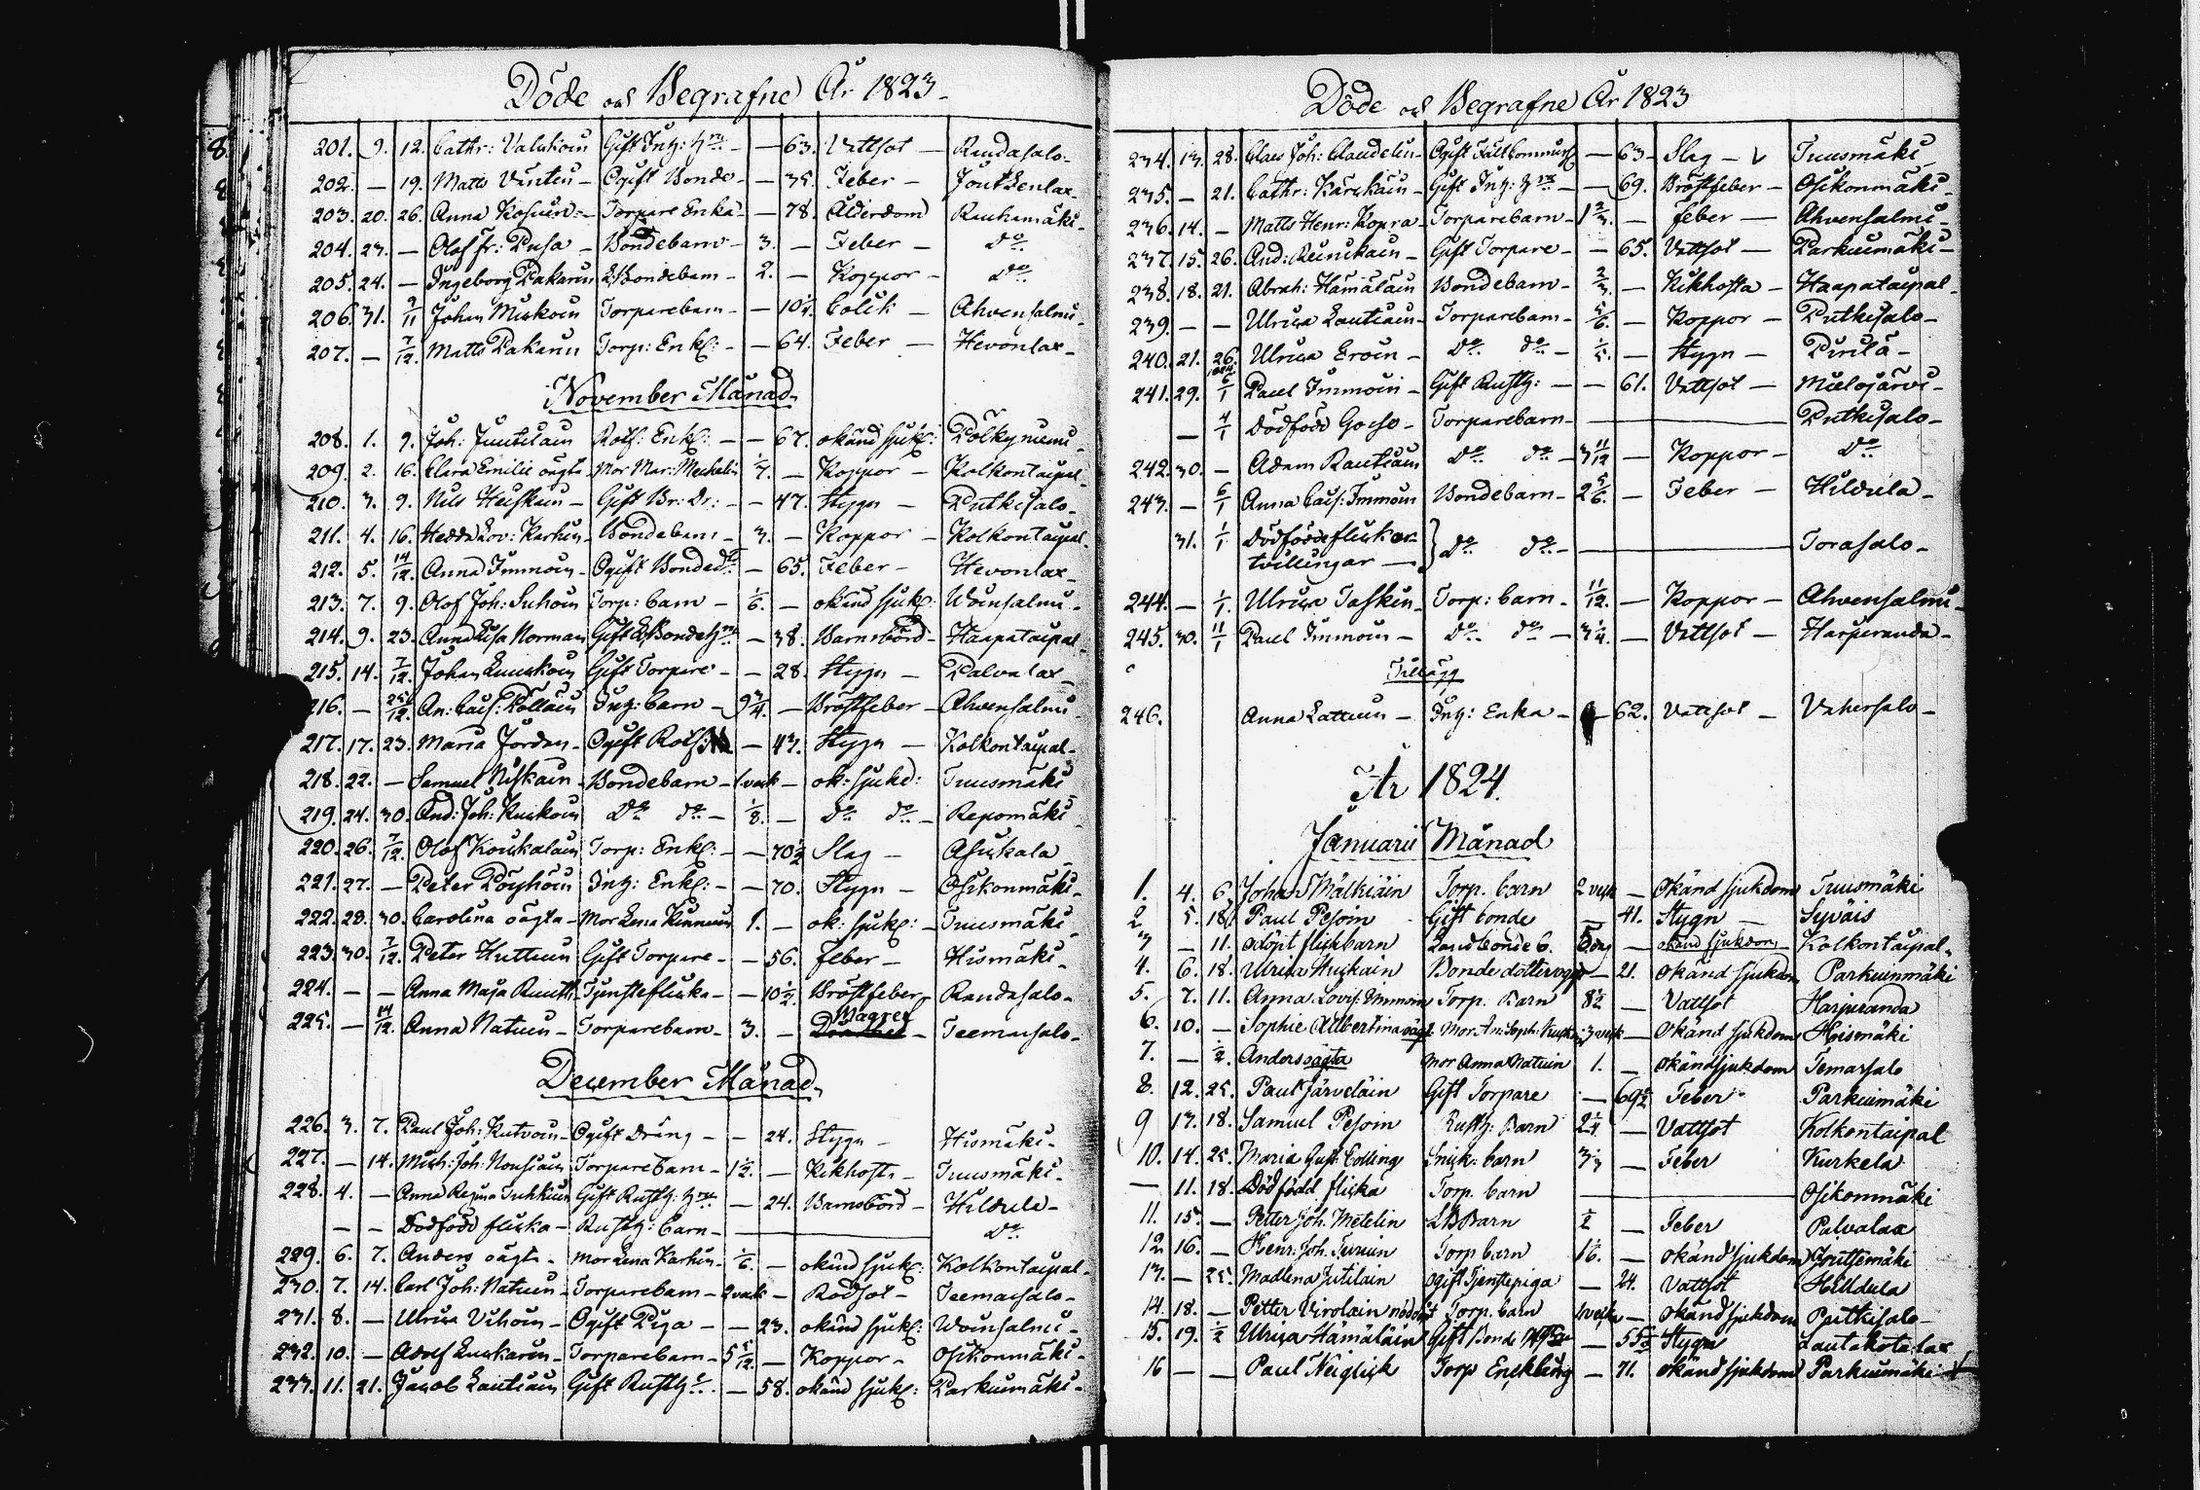 Döde och Begrafne År 1823
201. 9. 12. Cathr: Valutioin Gift Inh: Hu — 63. Vattsot — Randasalo
202. — 19. Matts Vinten — Ogift Bonde — 35. Feber — Joutsenlax
203. 20. 26. Anna Kosunen — Torpare Enka — 78. Ålderdom Rauhamäki
204. 23. — Olof Fr: Pusa — Bondebarn — 3. — Feber — do
205. 24. — Ingeborg Pakarin Bondebarn — 2. — Koppor — do
206. 31. 2/11 Johan Miskoin Torparebarn — 10 Colik — Ahvensalmi
207. — 7/12 Matts Pakarin Torp: Enkl: — 64. Feber — Hevonlax
November Månad
208. 1. 9. Joh: Juutilain Enkl: — 67. okänd sjukd: Pölkyniemi
209. 2. 16. Clara Emilie oägta Mor Mar: Mechelin — Koppor — Kolkontaipal
210. 3. 9. Nils Heiskain — Gift — 47. Stygn — Putkisalo
211. 4. 16. Hedda Lov: Karhin — Bondebarn — 3. — Koppor — Kolkontaipal
212. 5. 14/12 Anna Immoin — Ogift Bonded — 65. Feber — Hevonlax
213. 7. 9. Olof Joh: Suhoin Torp: barn — 1/6. — okänd sjukd: Woinsalmi
214. 9. 23. Anna Lisa Norman Gift — 38. Barnsbörd — Haapataipal
215. 14. 7/12 Johan Gift Torpare — 28. Stygn — Palvalax
216. — 25/12 An: Cais: Pöllain Inh: barn — 9 3/4. — Bröstfeber — Ahvensalmi
217. 17. 23. Maria Jordan — Ogift — 43. Stygn — Kolkontaipal
218. 22. — Samuel Niskain — Bondebarn — 1 veck — ok: sjukd: Tuusmäki
219. 24. 30. And: Joh: Kuskoin do do — 1/8. — do do — Repomäki
220. 26. 7/12. Olof Koukalain Torp: Enkl: — 70 1/2 Slag — Asikkala
221. 27. — Peter Pöyhöin Inh: Enkl: — 70. Stygn — Osikonmäki
222. 29. 30. Carolina oägta — Mor Lena Kinnunen 1. — ok: sjukd: — Tuusmäki
223. 30. 7/12 Peter Huttun Gift Torpare — 56. Feber — Hismäki
224. — — Anna Maja Ruutt — Tjensteflicka — 10 1/2. Bröstfeber Randasalo
225. — 14/12. Anna Natun — Torparebarn — 3. — Magref — Teemasalo
December Månad
226. 3. 7. Paul Joh: Kutvoin — Ogift Dräng — 24. Stygn — Hismäki
227. — 14. Mich: Joh: Nousiain Torparebarn — 1 1/2. — Kikhosta — Tuusmäki
228. 4. — Anna Regina Tuhkun Gift Rusth: Hu — 24. Barnsbörd — Hildula
— — Dödfödd flicka — Rusth: barn — do
229. 6. 7. Anders oägta — Mor Lena Karhin — 1/6. — okänd sjukd: Kolkontaipal
230. 7. 14. Carl Joh: Natun — Torparebarn — 2 veck — Rödsot — Teemasalo
231. 8. — Ulrica Vihoin — Ogift Piga — 23. okänd sjukd: Woinsalmi
232. 10. — Adolf Luskarin — Torparebarn — 5 5/12 — Koppor — Osikonmäki
233. 11. 21. Jacob Lautiain Gift Rusth — 58. okänd sjukd: Parkumäki
Döde och Begrafne År 1823
234. 13. 28. Claes Joh: Claudelin — Ogift — 63 — Slag — Tuusmäki
235. — 21. Cathr: Kärckäin — Gift Inh: Hu — 69. Bröstfeber — Osikonmäki
236. 14. — Matts Henr: Kopra — Torparebarn — 1 2/3. — feber — Ahvensalmi
237. 15. 26. And: Reinikain — Gift Torpare — 65. Vattsot — Parkumäki
238. 18. 21. Abrah: Hämäläin Bondebarn — 2/3. — Kikhosta — Haapataipal
239. — — Ulrica Lautiain — Torparebarn — 5/6. — Koppor — Putkisalo
240. 21. 26. Ulrica Eroin — do do — Stygn — Pirilä
241. 29. 6/1 Paul Immoin — Gift Rusth: — 61. Vattsot — Mielojärvi
— 4/1 Dödfödd — Torparebarn — Putkisalo
242. 30. — Adam Rautiain do do — 3 11/12 — Koppor — do
243. — 6/1 Anna Cais: Immoin Bondebarn — 2 5/6. — Feber — Hildula
31. 1/1 Dödfödde flickor
tvillingar — do do — Torasalo
244. — 1/1. Ulrica Taskin — Torp: barn — 11/12. — Koppor — Ahvensalmi
245. 30. 11/1 Paul Immoin — do do — 3 1/4. — Vattsot — Harjuranda
Tillägg
246. Anna Lattuin — Inh: Enka — 62. Vattsot — Vahersalo
År 1824.
Januarii Månad
1. 4. 6. Johan Mälkiäin Torp. barn 2 veck — Okänd sjukdom Tuusmäki
2 5. 18. Paul Pesoin Gift bonde — 41. Stygn — Syväis
3 — 11. odöpt flickbarn Landbonde b. — okänd sjukdom Kolkontaipal
4. 6. 18. Ulrica Huskain Bonde dotter — 21. okänd sjukdom Parkuinmäki
5. 7. 11. Anna Lovis. Immoin Torp. Barn 8 1/2 — Vattsot Harjuranda
6. 10. — Sophie Albertina oägt. Mor An: Soph: 3 veck — okänd sjukdom Heismäki
7. — 1/2. Anders oägta Mor Anna Natuin 1. — okänd sjukdom Temasalo
8. 12. 25. Paul Järveläin Gift Torpare — Feber Parkuimäki
9 13. 18. Samuel Pesoin Rusth: Barn 2 1/4 — Vattsot Kolkontaipal
10. 14. 25. Maria Gust: Colling Snick: barn — Feber Kurkela
— 11. 18. Dödfödd flicka Torp. barn Osikonmäki
11. 15. — Petter Joh. Metelin L B Barn 1/2 — Feber Palvalax
12. 16. — Henr: Joh. Turuin Torp barn — okänd sjukdom Joutsimäki
13. — 25. Madlena Jutilain ogift Tjenstepiga — 24. Vattsot Hilldula
14. 18. — Petter Virolain nöddöpt Torp. barn 1 veck — okänd sjukdom Putkisalo
15. 19. 1/2 Ulrica Hämäläin Gift Bonde — Stygn Lautakotalax
16 — — Paul Neiglick Torp Enckling — 71. okänd sjukdom Parkuimäki